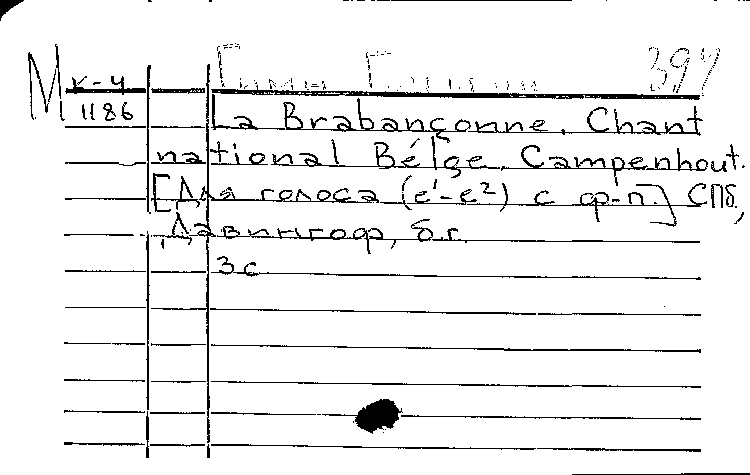 М к-4 Гимн 397
1186 La Brabançonne. Chant
national Bélge. Campenhout.
[Для голоса (e¹-e²) с ф-п.] СПб,
Давингоф, б.г.
3 с